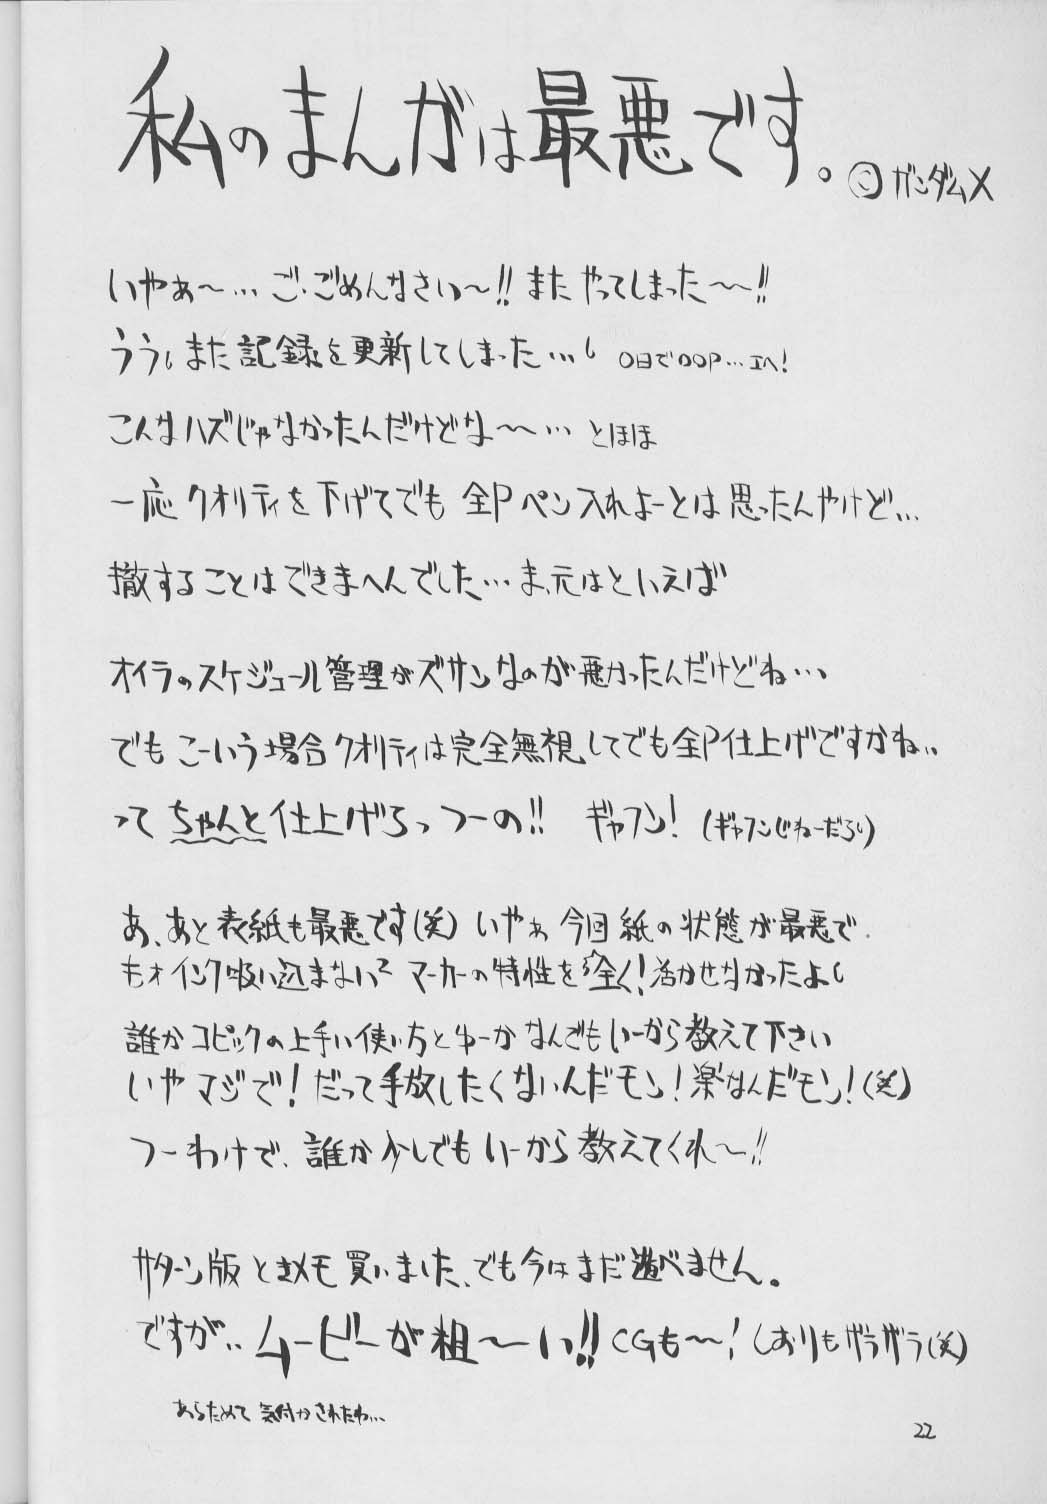 私のまんがは最悪です。©ガンダムX
いやぁ～… ご・ごめんなさい～!! また やってしまった～～!!
うう。また記録を更新してしまった… 0日で00P…エヘ!
こんなハズじゃなかったんだけどな～～… とほほ
一応クオリティを下げてでも 全Pペン入れよーとは思ったんやけど…
撤することはできまへんでした… ま、元はといえば
オイラのスケジュール管理がズサンなのが悪かったんだけどね…
でも こーいう場合クオリティは完全無視してでも全P仕上げですかね..
って ちゃんと仕上げろっつーの!! ギャフン! (ギャフンじねーだろ)
あ、あと表紙も最悪です(笑) いやぁ 今回 紙の状態が最悪で.
もォ インク吸い込まない マーカーの特性を全く! 活かせなかったよ
誰かコピックの上手い使い方とゆーか なんでもいーから教えて下さい
いやマジで! だって手放したくないんだモン! 楽なんだモン! (笑)
つーわけで、誰か少しでもいーから教えてくれ～!!
サターン版ときメモ買いました、でも今はまだ遊べません。
ですが.. ムービーが粗～い!! CGも～! しおりもザラザラ(笑)
あらためて 気付かされたわ…
22